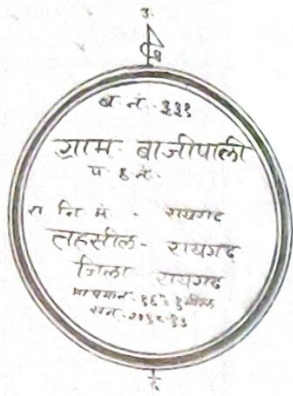 उ.
ब. नं. - ३३१
ग्राम - बाजीपाली
प. ह. नं. -
रा नि मं - रायगढ
तहसील - रायगढ
जिला रायगढ
मापमान - १६" = १ मील
सन -
द